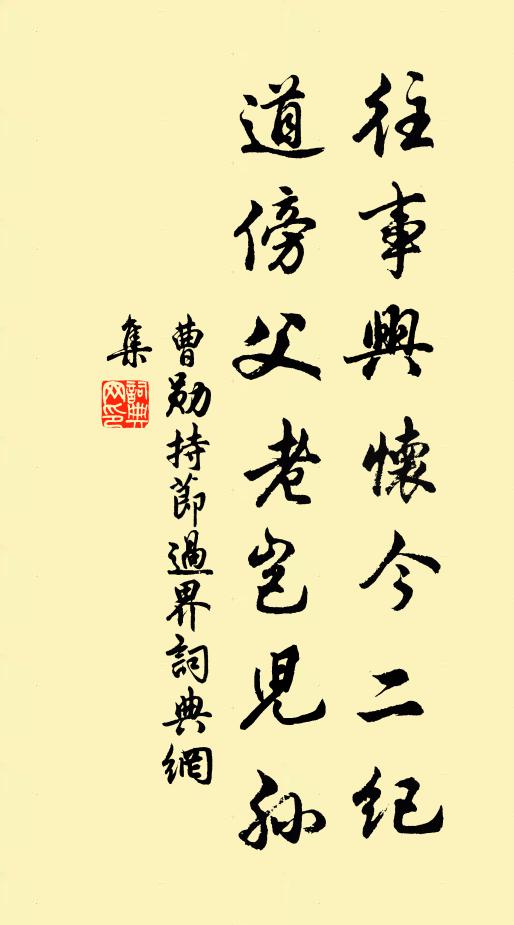 往事興懷今二紀
道傍父老岂兒孫
曹勛持節過界詞典網
集
詞典
网印